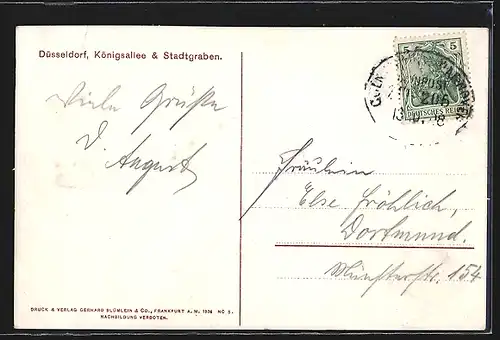 Düsseldorf, Königsallee & Stadtgraben.
5
DEUTSCHES REICH
Viele Grüße
D. August
Fräulein
Else Fröhlich,
Dortmund.
Münsterstr. 154
DRUCK & VERLAG GERHARD BLÜMLEIN & CO., FRANKFURT A. M. 1936 NO 5.
NACHBILDUNG VERBOTEN.